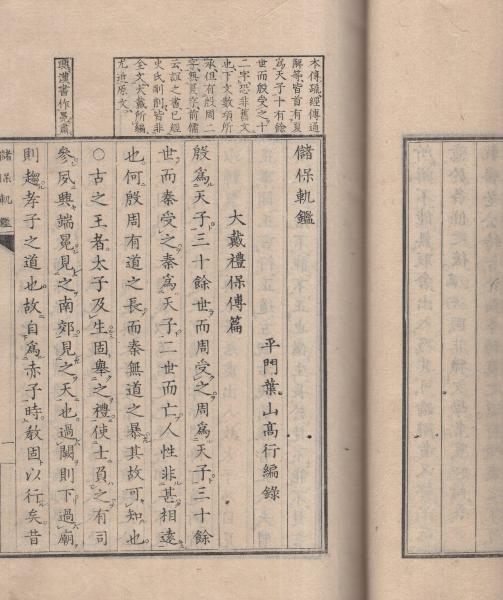 本傳疏經傳通
解等皆首有夏
爲天子十有餘
世而殷受之十
二字恐非舊文
也下文數項所
承但有殷周二
字無夏字前儒
云誼之書已經
史氏刪削皆非
全文大戴所編
尤近原文
漢書作肅
儲保軌鑑
平門葉山高行編錄
大戴禮保傅篇
殷爲天子三十餘世而周受之周爲天子三十餘
世而秦受之秦爲天子二世而亡人性非甚相遠
也何殷周有道之長而秦無道之暴其故可知也
○古之王者太子乃生固舉之禮使士負之有司
參夙興端冕見之南郊見之天也過闕則下過廟
則趨孝子之道也故自爲赤子時敎固以行矣昔
儲保軌鑑
一